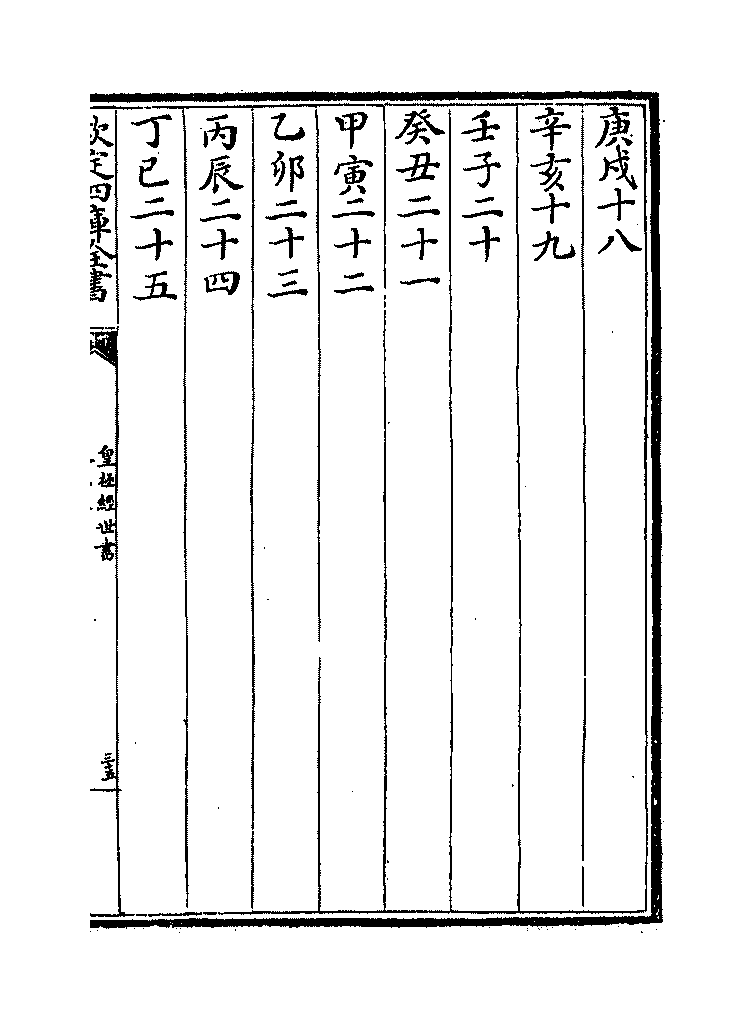 庚戌十八
辛亥十九
壬子二十
癸丑二十一
甲寅二十二
乙卯二十三
丙辰二十四
丁巳二十五
欽定四庫全書
皇極經世書
三五